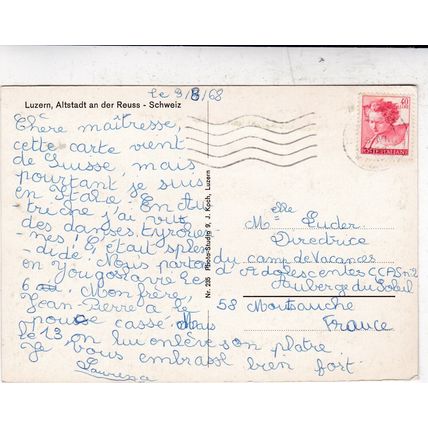 le 9/8/68
Luzern, Altstadt an der Reuss - Schweiz
Chère maîtresse,
cette carte vient
de Suisse, mais
pourtant je suis
en Italie. En Au
triche j'ai vu
des danses tyrolien-
nes! C'était splen
dide! Nous partons
en Yougoslavie le
6 Mon frère,
Jean-Pierre a le
pouce cassé. Mais
le 13, on lui enlève son platre.
Je vous embrasse bien fort.
Nr. 215 Photo-Studio 9, J. Koch, Luzern
40
POSTE ITALIANE
Melle Luder
Directrice
du camp de Vacances
d'Adolescentes CCAS n°2
Auberge du Soleil
58 Montsauche
France